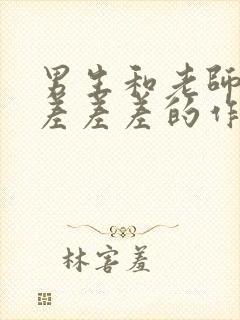 男生和老師
差差差的作
林害羞